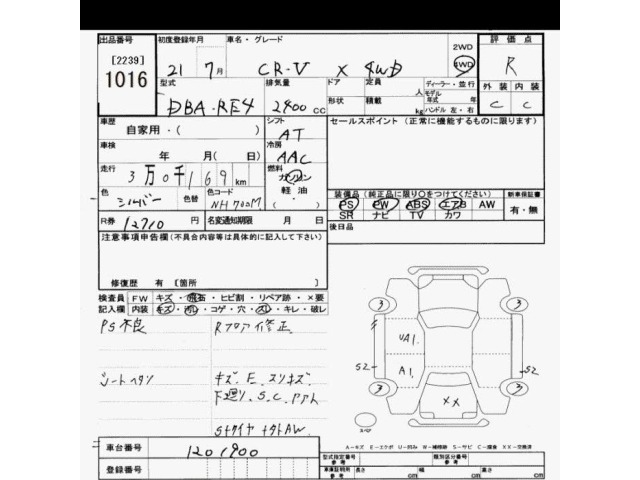 出品番号 初度登録年月 車名・グレード 2WD 評価点
[2239]
1016
21 7月 CR-V X 4WD 4WD R
型式 排気量 ドア 定員 人 ディーラー・並行 外装 内装
DBA-RE4 2400cc 形状 積載 kg モデル年式 年 ハンドル 左・右 C C
車歴 シフト セールスポイント (正常に機能するものに限ります)
自家用・( ) AT
車検 冷房
年 月(日) AAC
走行 燃料
3万0千169km ガソリン
軽油
色 色替 色コード 装備品 (純正品に限り○をつけてください) 新車保証書
シルバー NH700M PS PW ABS エアB AW 有・無
SR ナビ TV カワ
R券 12710円 名変通知期限 月 日 後日品
注意事項申告欄(不具合内容等は具体的に記入して下さい)
修復歴 有 [箇所 ]
検査員 FW キズ・飛石・ヒビ割・リペア跡・×要
記入欄 内装 キズ・汚レ・コゲ・穴・スレ・キレ・破レ
PS不良 Rフロア修正
3 3
UA1.
S2 A1. S2
シートヘタリ キズ.E.スリキズ
3 3
XX
下廻り.S.C.
スペア
SタイヤナットAW
A-キズ E-エクボ U-凹み W-補修跡 S-サビ C-腐食 XX-交換済
車台番号 1201900
型式指定番号 参考 類別区分番号 参考
登録番号 車庫証明用 参考 長さ cm 幅 cm 高さ cm